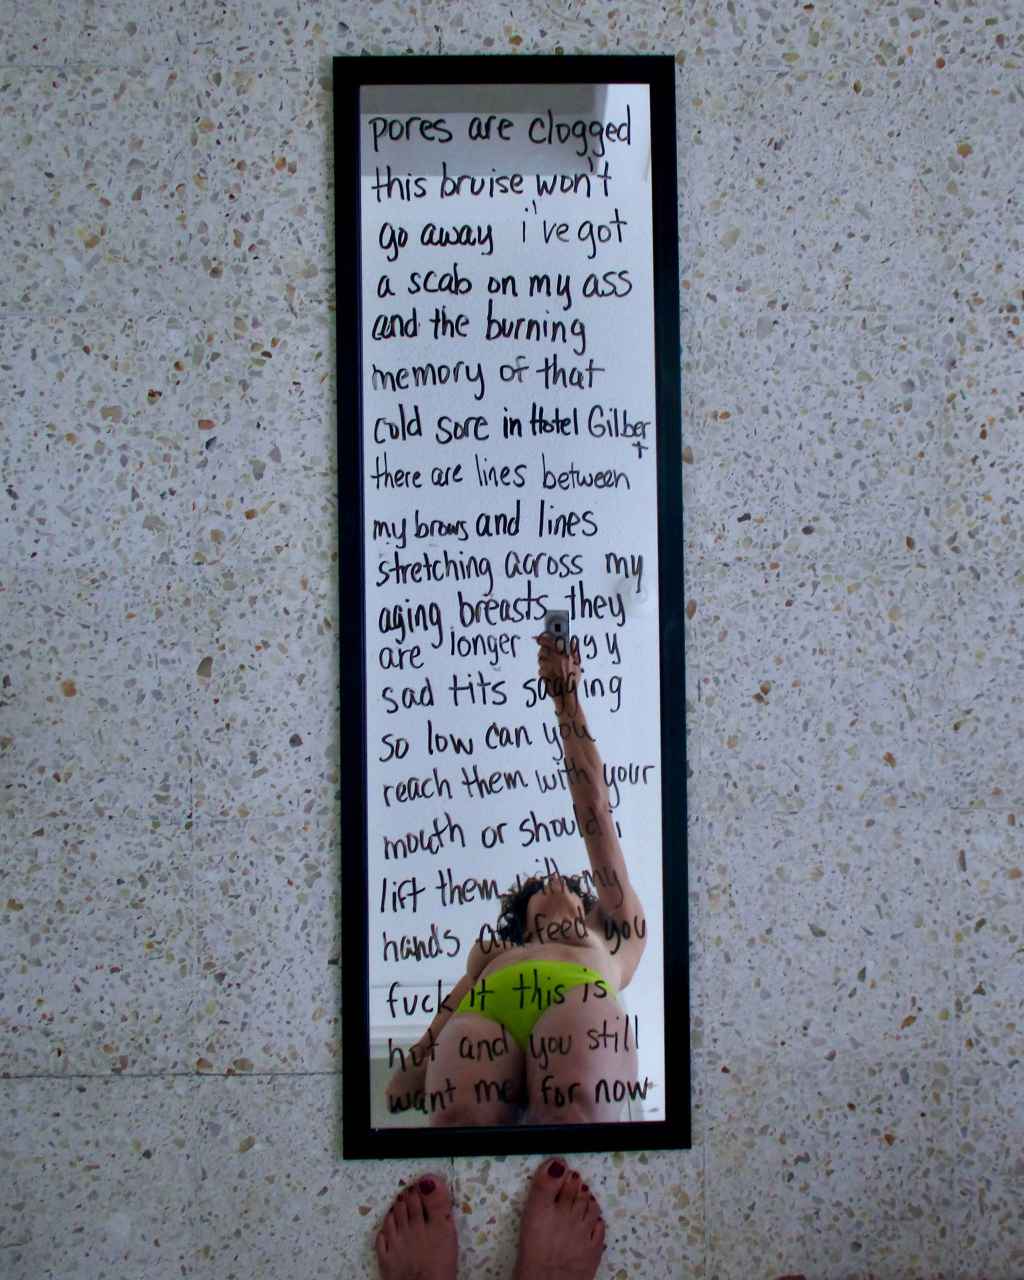 pores are clogged
this bruise won't
go away i've got
a scab on my ass
and the burning
memory of that
cold sore in Hotel Gilbert
there are lines between
my brows and lines
stretching across my
aging breasts they
are longer saggy
sad tits sagging
so low can you
reach them with your
mouth or should i
lift them with my
hands and feed you
fuck it this is
hot and you still
want me for now